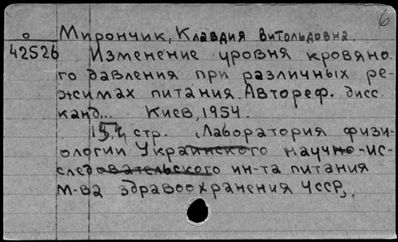 6
Мирончик, Клавдия Витольдовна.
42526 Изменение уровня кровяно
го давления при различных ре-
жимах питания. Автореф. дисс.
канд... Киев, 1954.
15 стр. (Лаборатория физи-
ологии Украинского научно-ис-
следовательского ин-та питания
М-ва здравоохранения УССР).